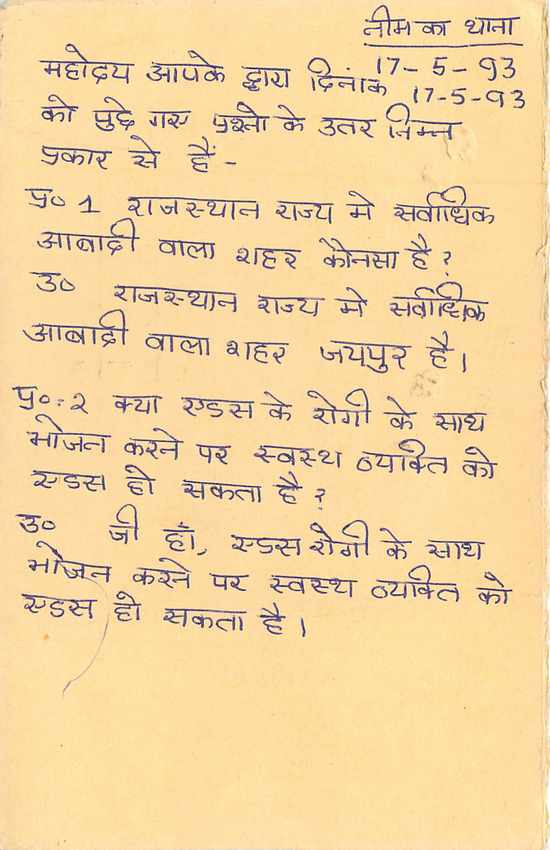 नीम का थाना
17-5-93
महोदय आपके द्वारा दिनांक 17-5-93
को पुछे गए प्रश्नो के उतर निम्न
प्रकार से हैं -
प्र० 1 राजस्थान राज्य मे सर्वाधिक
आबादी वाला शहर कौनसा है ?
उ० राजस्थान राज्य मे सर्वाधिक
आबादी वाला शहर जयपुर है।
प्र०:२ क्या एडस के रोगी के साथ
भोजन करने पर स्वस्थ व्यक्ति को
एडस हो सकता है ?
उ० जी हाँ, एडस रोगी के साथ
भोजन करने पर स्वस्थ व्यक्ति को
एडस हो सकता है।